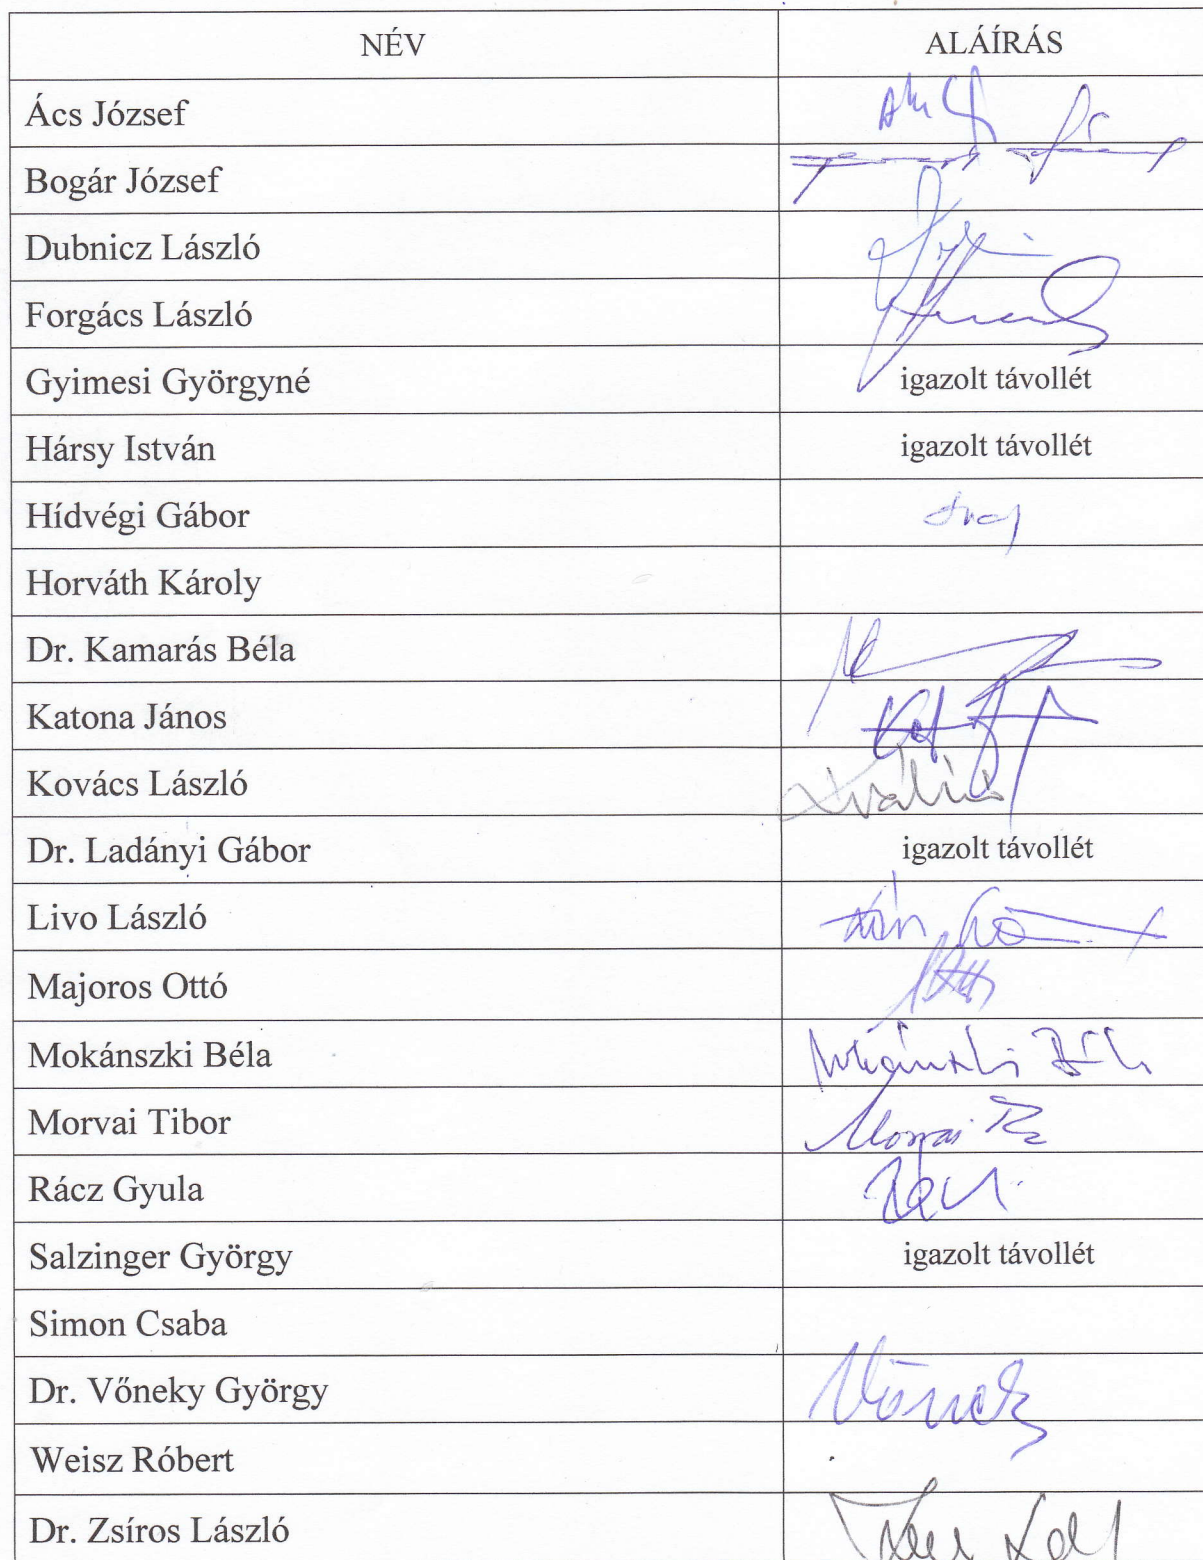 NÉV ALÁÍRÁS
Ács József
Bogár József
Dubnicz László
Forgács László
Gyimesi Györgyné igazolt távollét
Hársy István igazolt távollét
Hídvégi Gábor
Horváth Károly
Dr. Kamarás Béla
Katona János
Kovács László
Dr. Ladányi Gábor igazolt távollét
Livo László
Majoros Ottó
Mokánszki Béla
Morvai Tibor
Rácz Gyula
Salzinger György igazolt távollét
Simon Csaba
Dr. Vőneky György
Weisz Róbert
Dr. Zsíros László